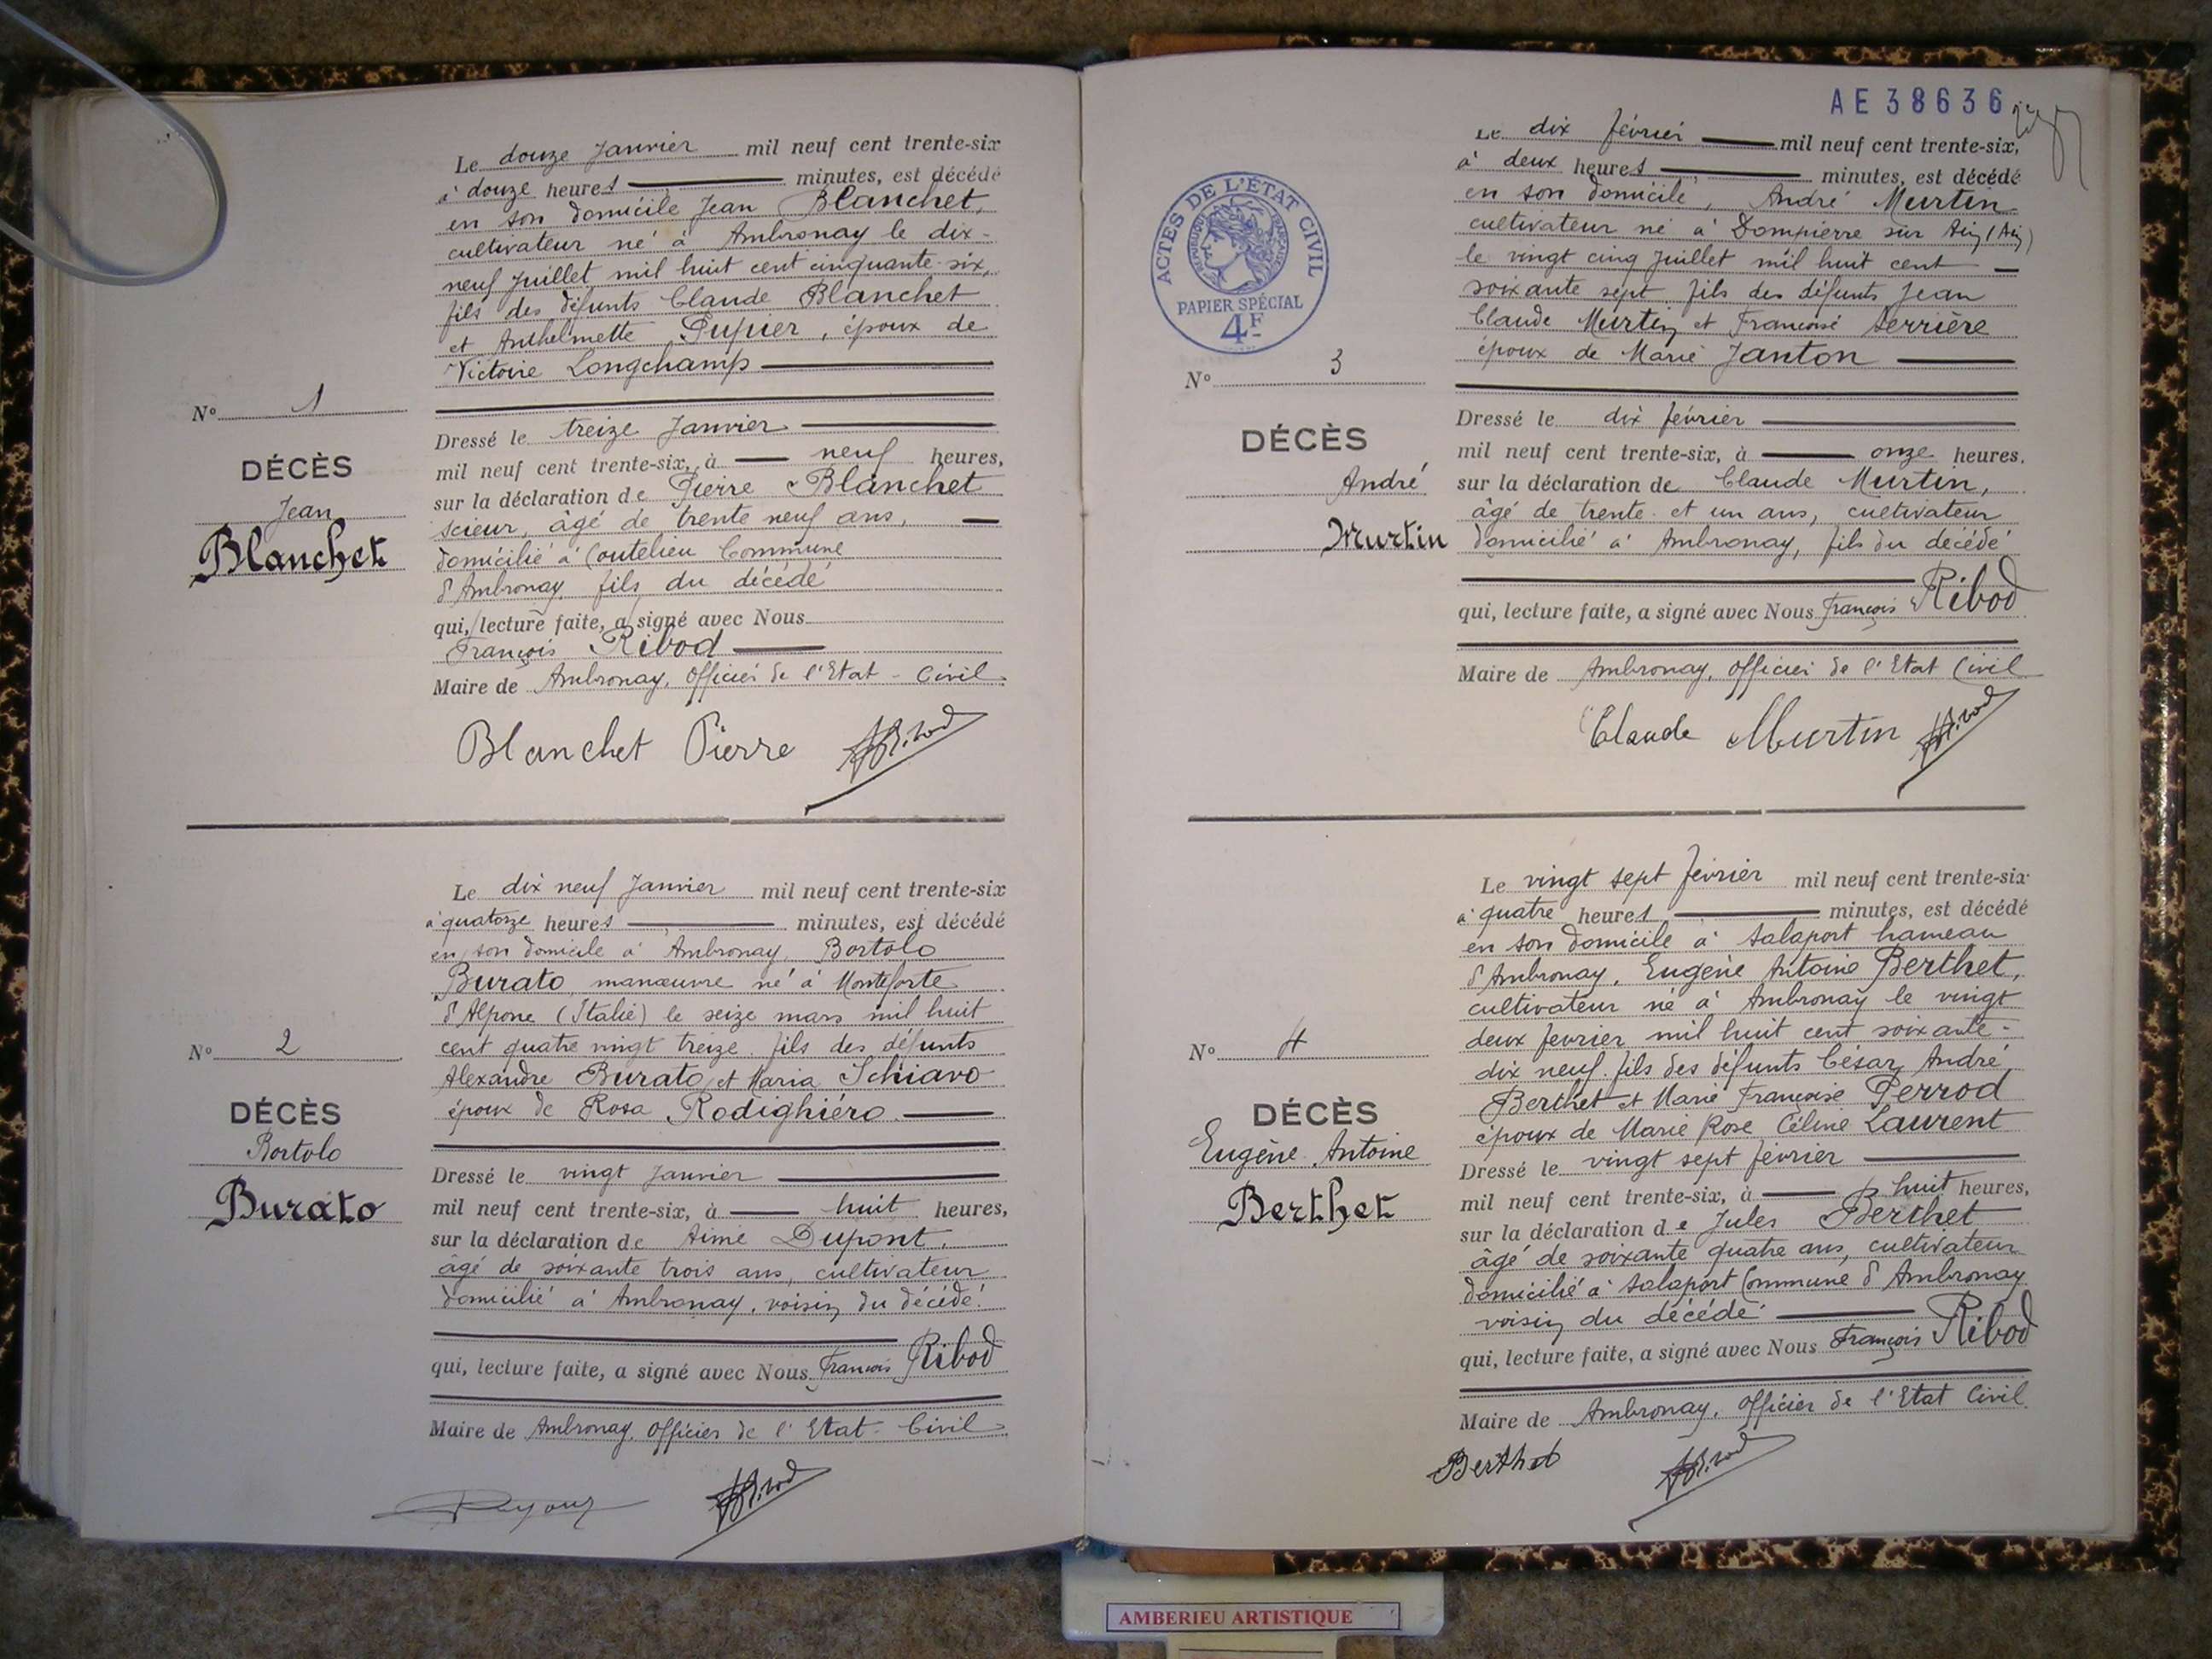 Le douze Janvier mil neuf cent trente-six
à douze heures minutes, est décédé
en son domicile Jean Blanchet,
cultivateur né à Ambronay le dix-
neuf Juillet mil huit cent cinquante-six,
fils des défunts Claude Blanchet
et Anthelmette Pupier, époux de
Victoire Longchamp
N° 1
DÉCÈS
Jean
Blanchet
Dressé le treize Janvier
mil neuf cent trente-six, à neuf heures,
sur la déclaration de Pierre Blanchet
scieur, âgé de trente neuf ans,
domicilié à Coutelieu Commune
d'Ambronay, fils du décédé
qui, lecture faite, a signé avec Nous
François Ribod
Maire de Ambronay, Officier de l'Etat-Civil
Blanchet Pierre
Le dix neuf Janvier mil neuf cent trente-six
à quatorze heures minutes, est décédé
en son domicile à Ambronay, Bortolo
Burato, manœuvre né à Monteforte
d'Alpone (Italie) le seize mars mil huit
cent quatre vingt treize. fils des défunts
Alexandre Burato et Maria Schiavo
époux de Rosa Rodighiéro.
N° 2
DÉCÈS
Bortolo
Burato
Dressé le vingt Janvier
mil neuf cent trente-six, à huit heures,
sur la déclaration de Aimé Dupont,
âgé de soixante trois ans, cultivateur
domicilié à Ambronay, voisin du décédé.
qui, lecture faite, a signé avec Nous François Ribod
Maire de Ambronay, Officier de l'Etat-Civil
AE38636
ACTES DE L'ÉTAT CIVIL
RÉPUBLIQUE FRANÇAISE
PAPIER SPÉCIAL
4F
Le dix février mil neuf cent trente-six,
à deux heures minutes, est décédé
en son domicile, André Murtin
cultivateur né à Dompierre sur Ain (Ain)
le vingt cinq Juillet mil huit cent
soixante sept. fils des défunts Jean
Claude Murtin et Françoise Serrière
époux de Marie Janton
N° 3
DÉCÈS
André
Murtin
Dressé le dix février
mil neuf cent trente-six, à onze heures,
sur la déclaration de Claude Murtin,
âgé de trente et un ans, cultivateur
domicilié à Ambronay, fils du décédé
qui, lecture faite, a signé avec Nous François Ribod
Maire de Ambronay, Officier de l'Etat Civil
Claude Murtin
Le vingt sept février mil neuf cent trente-six
à quatre heures minutes, est décédé
en son domicile à Salaport hameau
d'Ambronay, Eugène Antoine Berthet,
cultivateur né à Ambronay le vingt
deux février mil huit cent soixante-
dix neuf. fils des défunts César André
Berthet et Marie Françoise Perrod
époux de Marie Rose Céline Laurent
N° 4
DÉCÈS
Eugène Antoine
Berthet
Dressé le vingt sept février
mil neuf cent trente-six, à huit heures,
sur la déclaration de Jules Berthet
âgé de soixante quatre ans, cultivateur
domicilié à Salaport Commune d'Ambronay
voisin du décédé
qui, lecture faite, a signé avec Nous François Ribod
Maire de Ambronay, Officier de l'Etat Civil
Berthet
AMBERIEU ARTISTIQUE